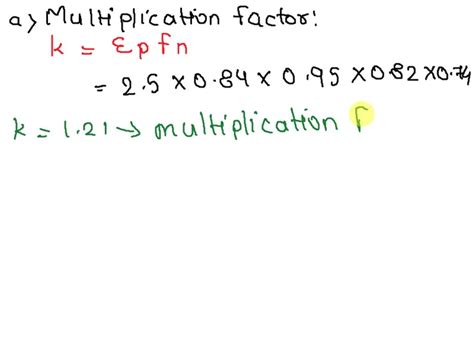 a) Multiplication factor:
k = Epfn
= 2.5 × 0.84 × 0.95 × 0.82 × 0.74
k = 1.21 → multiplication f